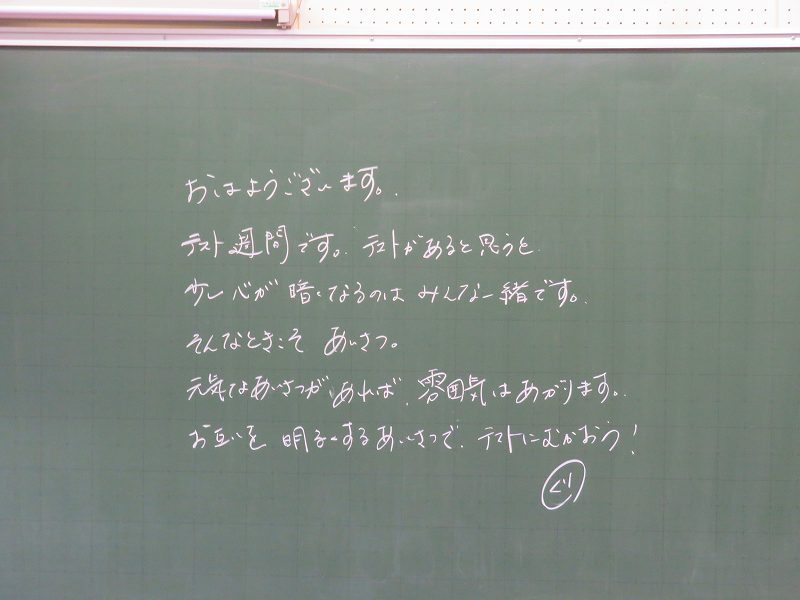 おはようございます。
テスト週間です。テストがあると思うと
少し心が暗くなるのは みんな一緒です。
そんなときこそ あいさつ。
元気なあいさつがあれば、雰囲気はあがります。
お互いを 明るくするあいさつで、テストにむかおう！
ぐり